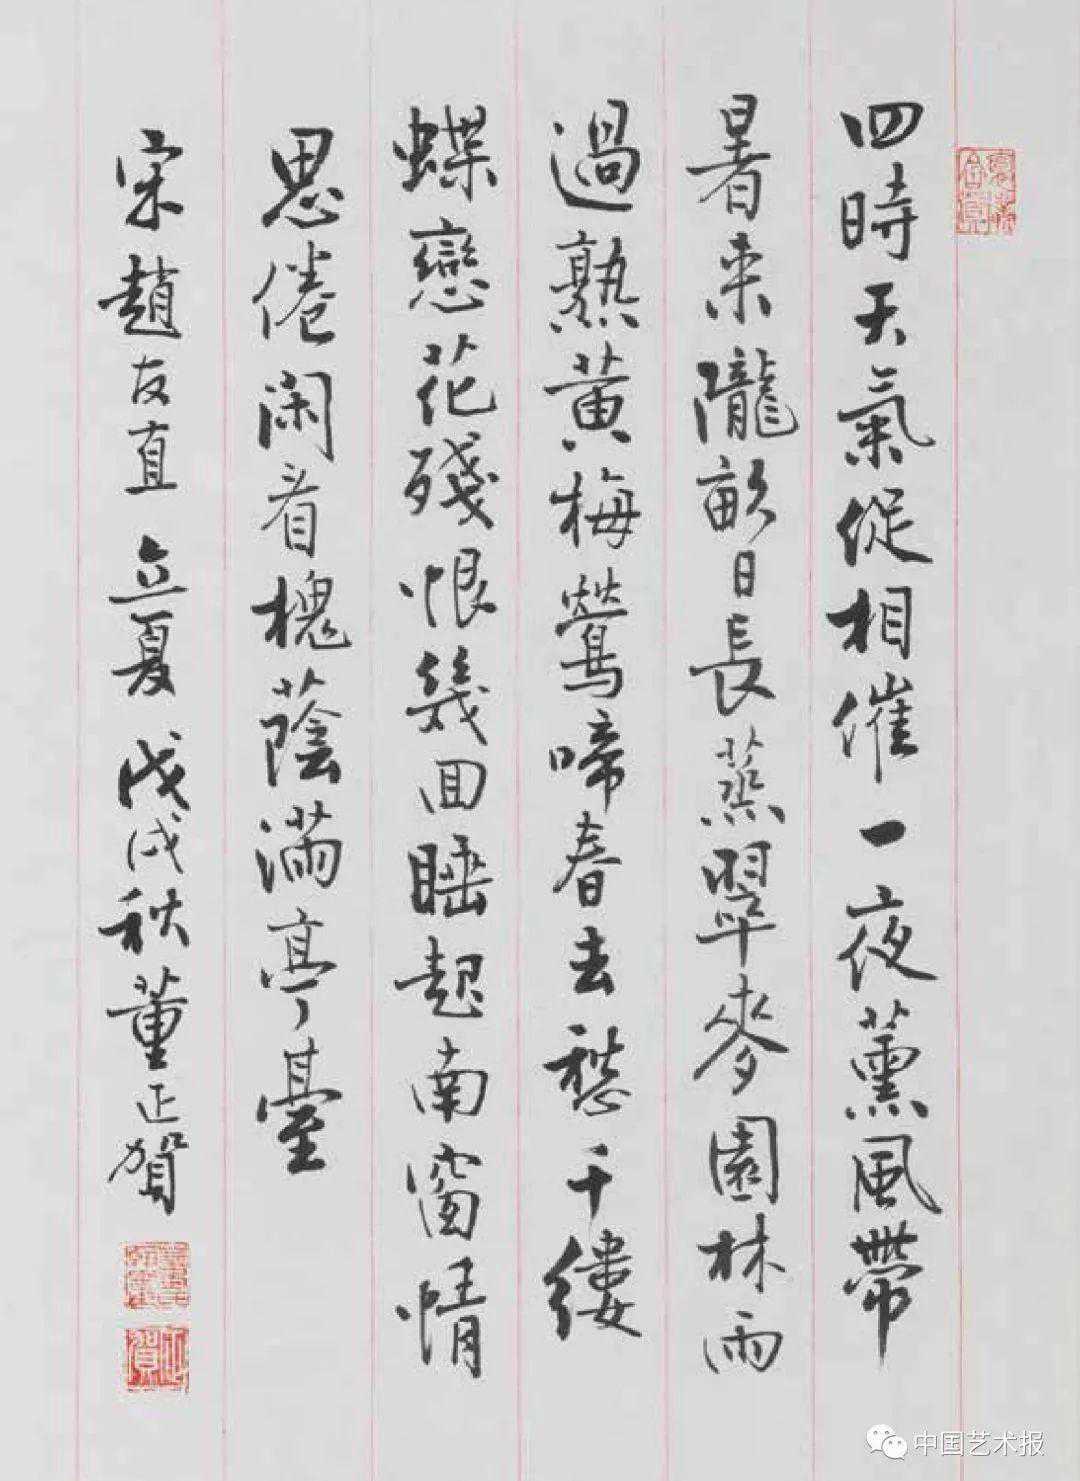 四時天氣促相催一夜薰風帶
暑来隴畝日長蒸翠麥園林雨
過熟黄梅鶯啼春去愁千縷
蝶戀花殘恨幾回睡起南窗情
思倦闲看槐蔭满亭臺
宋趙友直立夏戊戌秋董正賀
中国艺术报